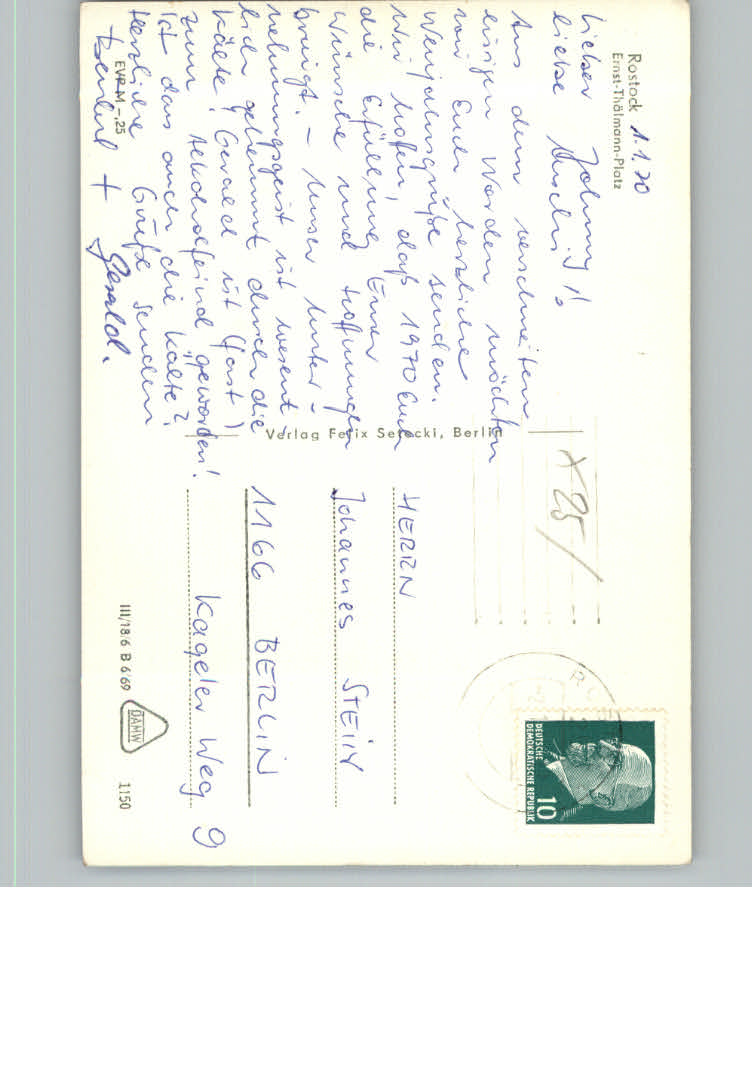 Rostock
Ernst-Thälmann-Platz
1.1.70
Lieber Johnny!
liebe Uschi!
Aus dem verschneiten
eisigen Norden möchten
wir Euch herzliche
Neujahrsgrüße senden.
Wir hoffen, daß 1970 Euch
die Erfüllung Eurer
Wünsche und Hoffnungen
bringt. – Unser Unter-
nehmungsgeist ist wesent-
lich gehemmt durch die
Kälte! Gerald ist (fast)
zum Alkoholfeind „geworden!
Ist das auch die Kälte?
Herzliche Grüße senden
+ Gerald.
EVP M –,25
Verlag Felix Setecki, Berlin
× 25/
HERRN
Johannes STEIN
1166 BERLIN
Kageler Weg 9
III/18/6 B 6/69
DAMW
1150
DEUTSCHE
DEMOKRATISCHE REPUBLIK
10